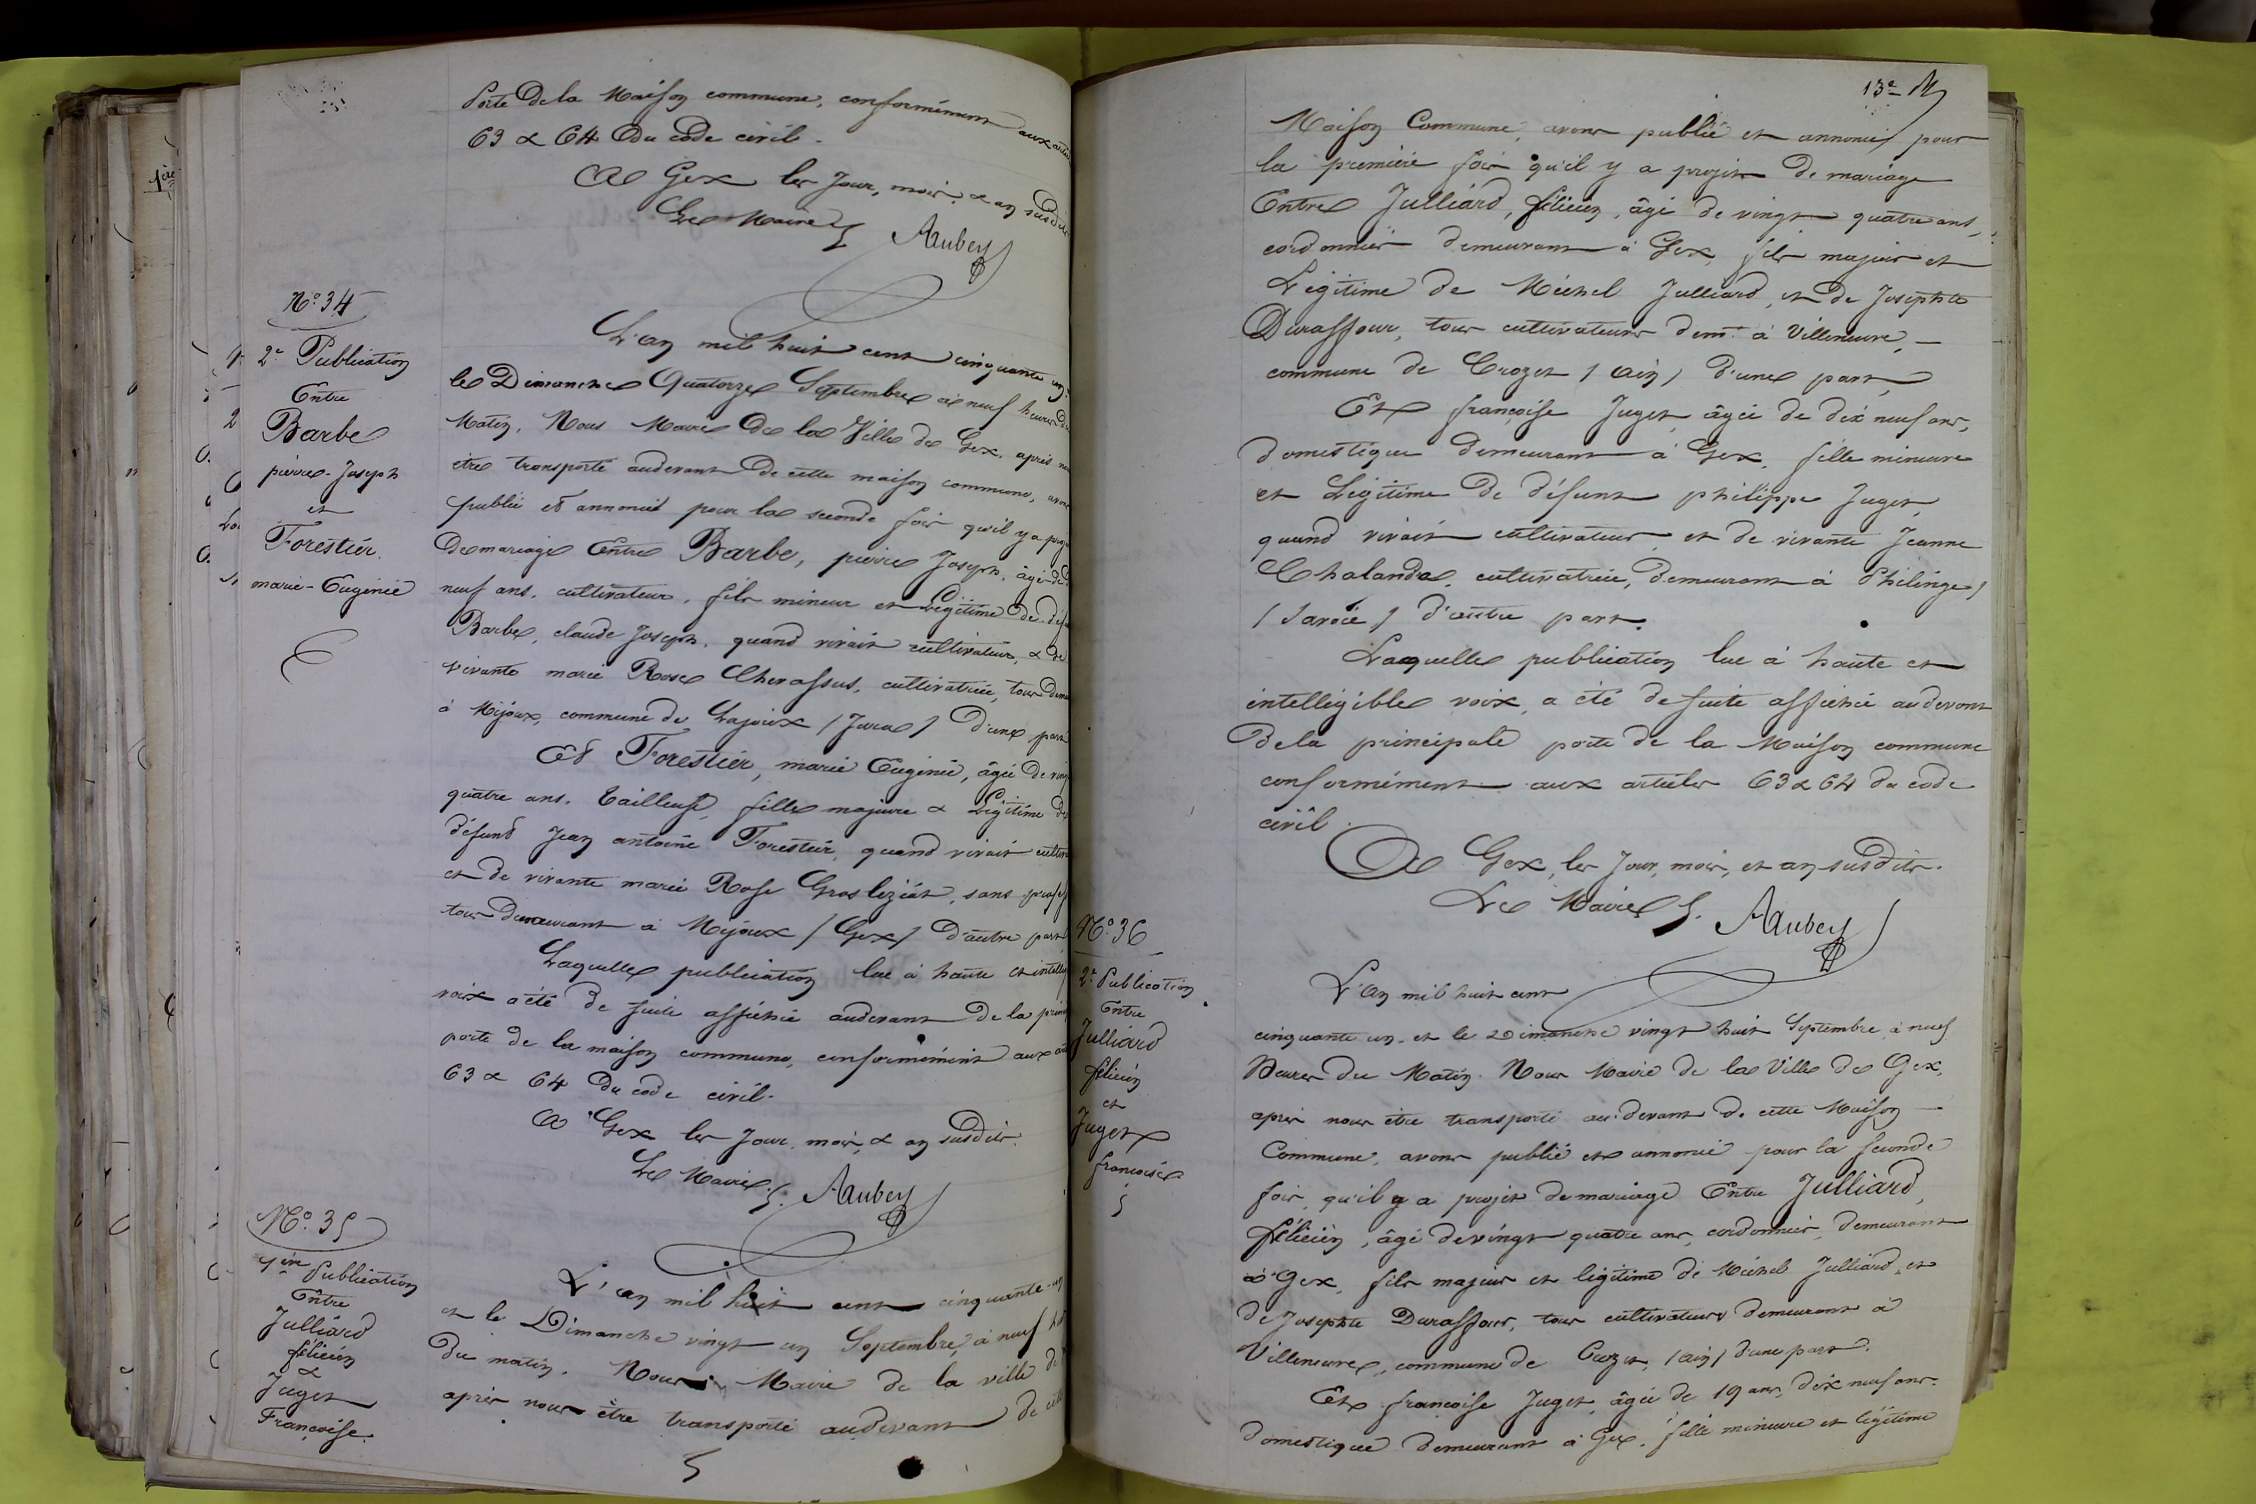 Porte de la Maison commune, conformément aux
63 & 64 du code civil.
A Gex les Jour, mois, & an susdits
Le Maire
AAubey
N° 34
2e Publication
Entre
Barbe
pierre-Joseph
et
Forestier
marie-Eugénie
L'an mil huit cent cinquante un
le Dimanche Quatorze Septembre à neuf heures du
Matin. Nous Maire de la Ville de Gex, après
être transporté audevant de cette maison commune,
publié et annoncé pour la seconde fois qu'il y a
de mariage Entre Barbe, pierre Joseph, âgé
neuf ans, cultivateur, fils mineur et Légitime de
Barbe, claude Joseph, quand vivait cultivateur, & de
vivante marie Rose Chevassus, cultivatrice, tous
à Mijoux, commune de Lajoux / Jura / d'une part
Et Forestier, marie Eugénie, âgée de
quatre ans, tailleuse, fille majeure & Légitime de
défunt Jean antoine Forestier, quand vivait
et de vivante marie Rose Grosleziat, sans
tous demeurant à Mijoux / Gex / d'autre part
Laquelle publication lue à haute et
voix a été de suite affiché audevant de la
porte de la maison commune, conformément aux
63 & 64 du code civil.
A Gex les Jour, mois, & an susdits.
Le Maire
AAubey
N° 35
1ère Publication
Entre
Julliard
félicien
&
Juget
Françoise
L'an mil huit cent cinquante-un
et le Dimanche vingt un Septembre, à neuf
du matin. Nous Maire de la ville de
après nous être transporté audevant de
13e
Maison Commune, avons publié et annoncé pour
la première fois qu'il y a projet de mariage
Entre Julliard, félicien, âgé de vingt quatre ans,
cordonnier demeurant à Gex, fils majeur et
Légitime de Michel Julliard, et de Josephte
Duraffour, tous cultivateurs demt. à Villeneuve,
commune de Crozet / ain / d'une part,
Et françoise Juget, âgée de dix neuf ans,
domestique demeurant à Gex, fille mineure
et Légitime de défunt philippe Juget,
quand vivait cultivateur, et de vivante Jeanne
Chalande, cultivatrice, demeurant à Philinge
/ Savoie / d'autre part.
Laquelle publication lue à haute et
intelligible voix, a été de suite affiché audevant
de la principale porte de la Maison commune
conformément aux articles 63 & 64 du code
civil.
A Gex, les Jour, mois, et an susdits.
Le Maire
AAubey
N° 36
2e Publication
Entre
Julliard
félicien
et
Juget
françoise
L'an mil huit cent
cinquante un, et le Dimanche vingt huit Septembre à neuf
Heures du Matin. Nous Maire de la Ville de Gex,
après nous être transporté au devant de cette Maison
Commune, avons publié et annoncé pour la seconde
fois, qu'il y a projet de mariage Entre Julliard,
félicien, âgé de vingt quatre ans, cordonnier, demeurant
à Gex, fils majeur et légitime de Michel Julliard, et
de Josephte Duraffour, tous cultivateurs demeurant à
Villeneuve, commune de Crozet, / ain / d'une part.
Et françoise Juget, âgée de 19 ans, dix neuf ans.
domestique demeurant à Gex, fille mineure et légitime